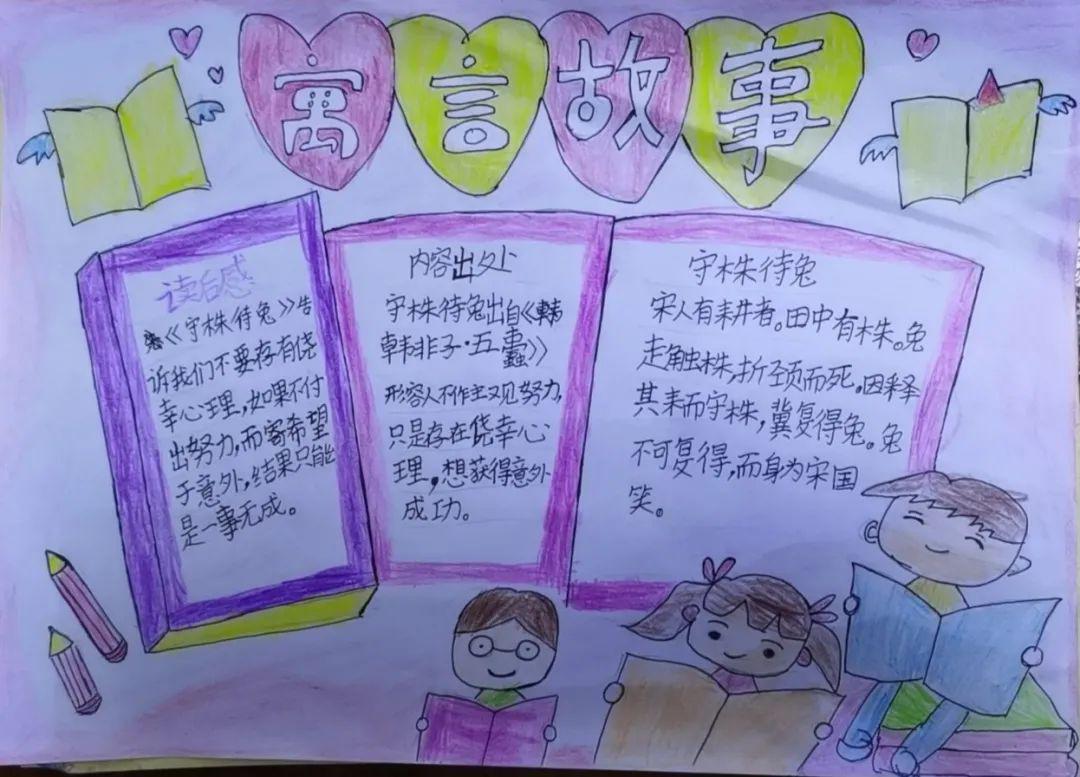 寓言故事
读后感
《守株待兔》告
诉我们不要存有侥
幸心理,如果不付
出努力,而寄希望
于意外,结果只能
是一事无成。
内容出处
守株待兔出自《韩
韩非子·五蠹》
形容人不作主观努力,
只是存在侥幸心
理,想获得意外
成功。
守株待兔
宋人有耕者。田中有株。兔
走触株,折颈而死。因释
其耒而守株,冀复得兔。兔
不可复得,而身为宋国
笑。